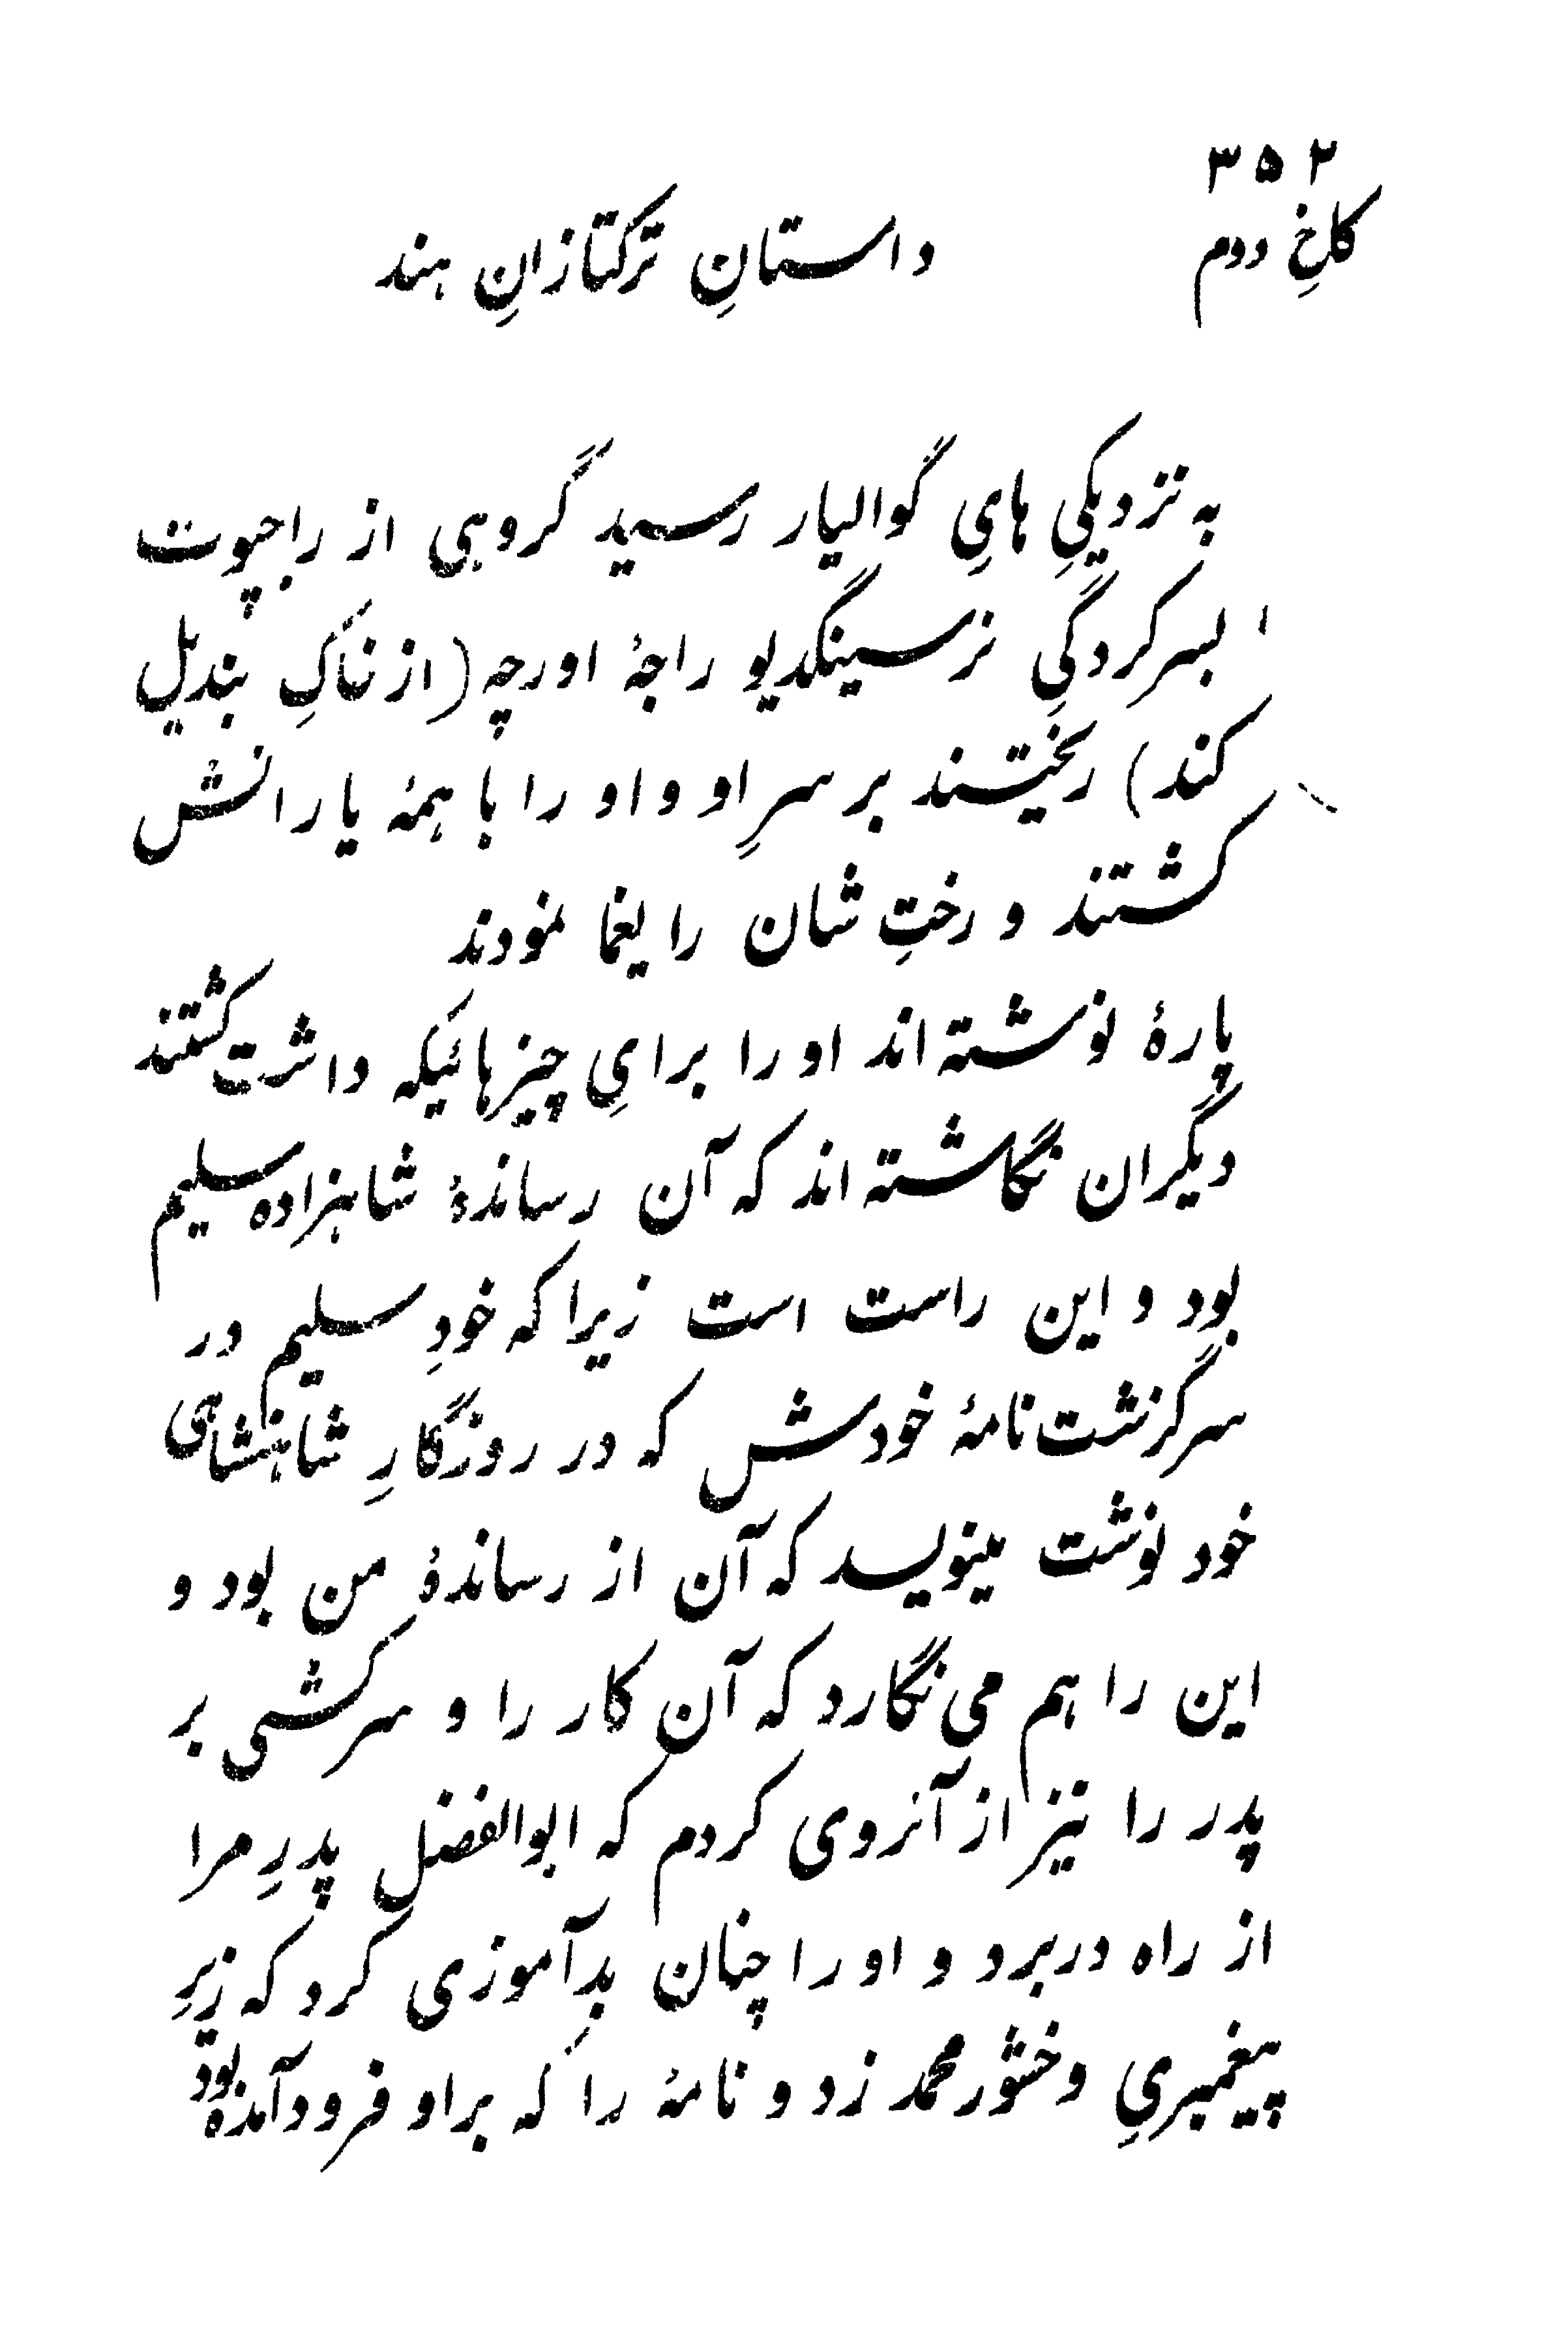 ۳۵۲
کاخِ دوم
داستانِ ترکتازانِ هند
به نزدیکیِ هایِ گوالیار رسید گروهی از راجپوت
بسرکردگیِ نرسینگدیو راجهٔ اورچه (از خاکِ بندیل
کند) ریختند بر سرِ او و او را با همهٔ یارانش
کشتند و رختِ شان را یغما نمودند
پارهٔ نوشته اند او را برایِ چیزهائیکه داشت کشتند
دیگران نگاشته اند که آن رساندهٔ شاهزاده سلیم
بود و این راست است زیرا که خودِ سلیم در
سرگزشت نامهٔ خودش که در روزگارِ شاهنشاهی
خود نوشت مینویسد که آن از رساندهٔ من بود و
این را هم می نگارد که آن کار را و سرکشی بر
پدر را نیز از آنروی کردم که ابوالفضل پدرِ مرا
از راه در برد و او را چنان بدآموزی کرد که زیرِ
پیغمبریِ وخشور محمد زد و نامهٔ را که بر او فرود آمده بود